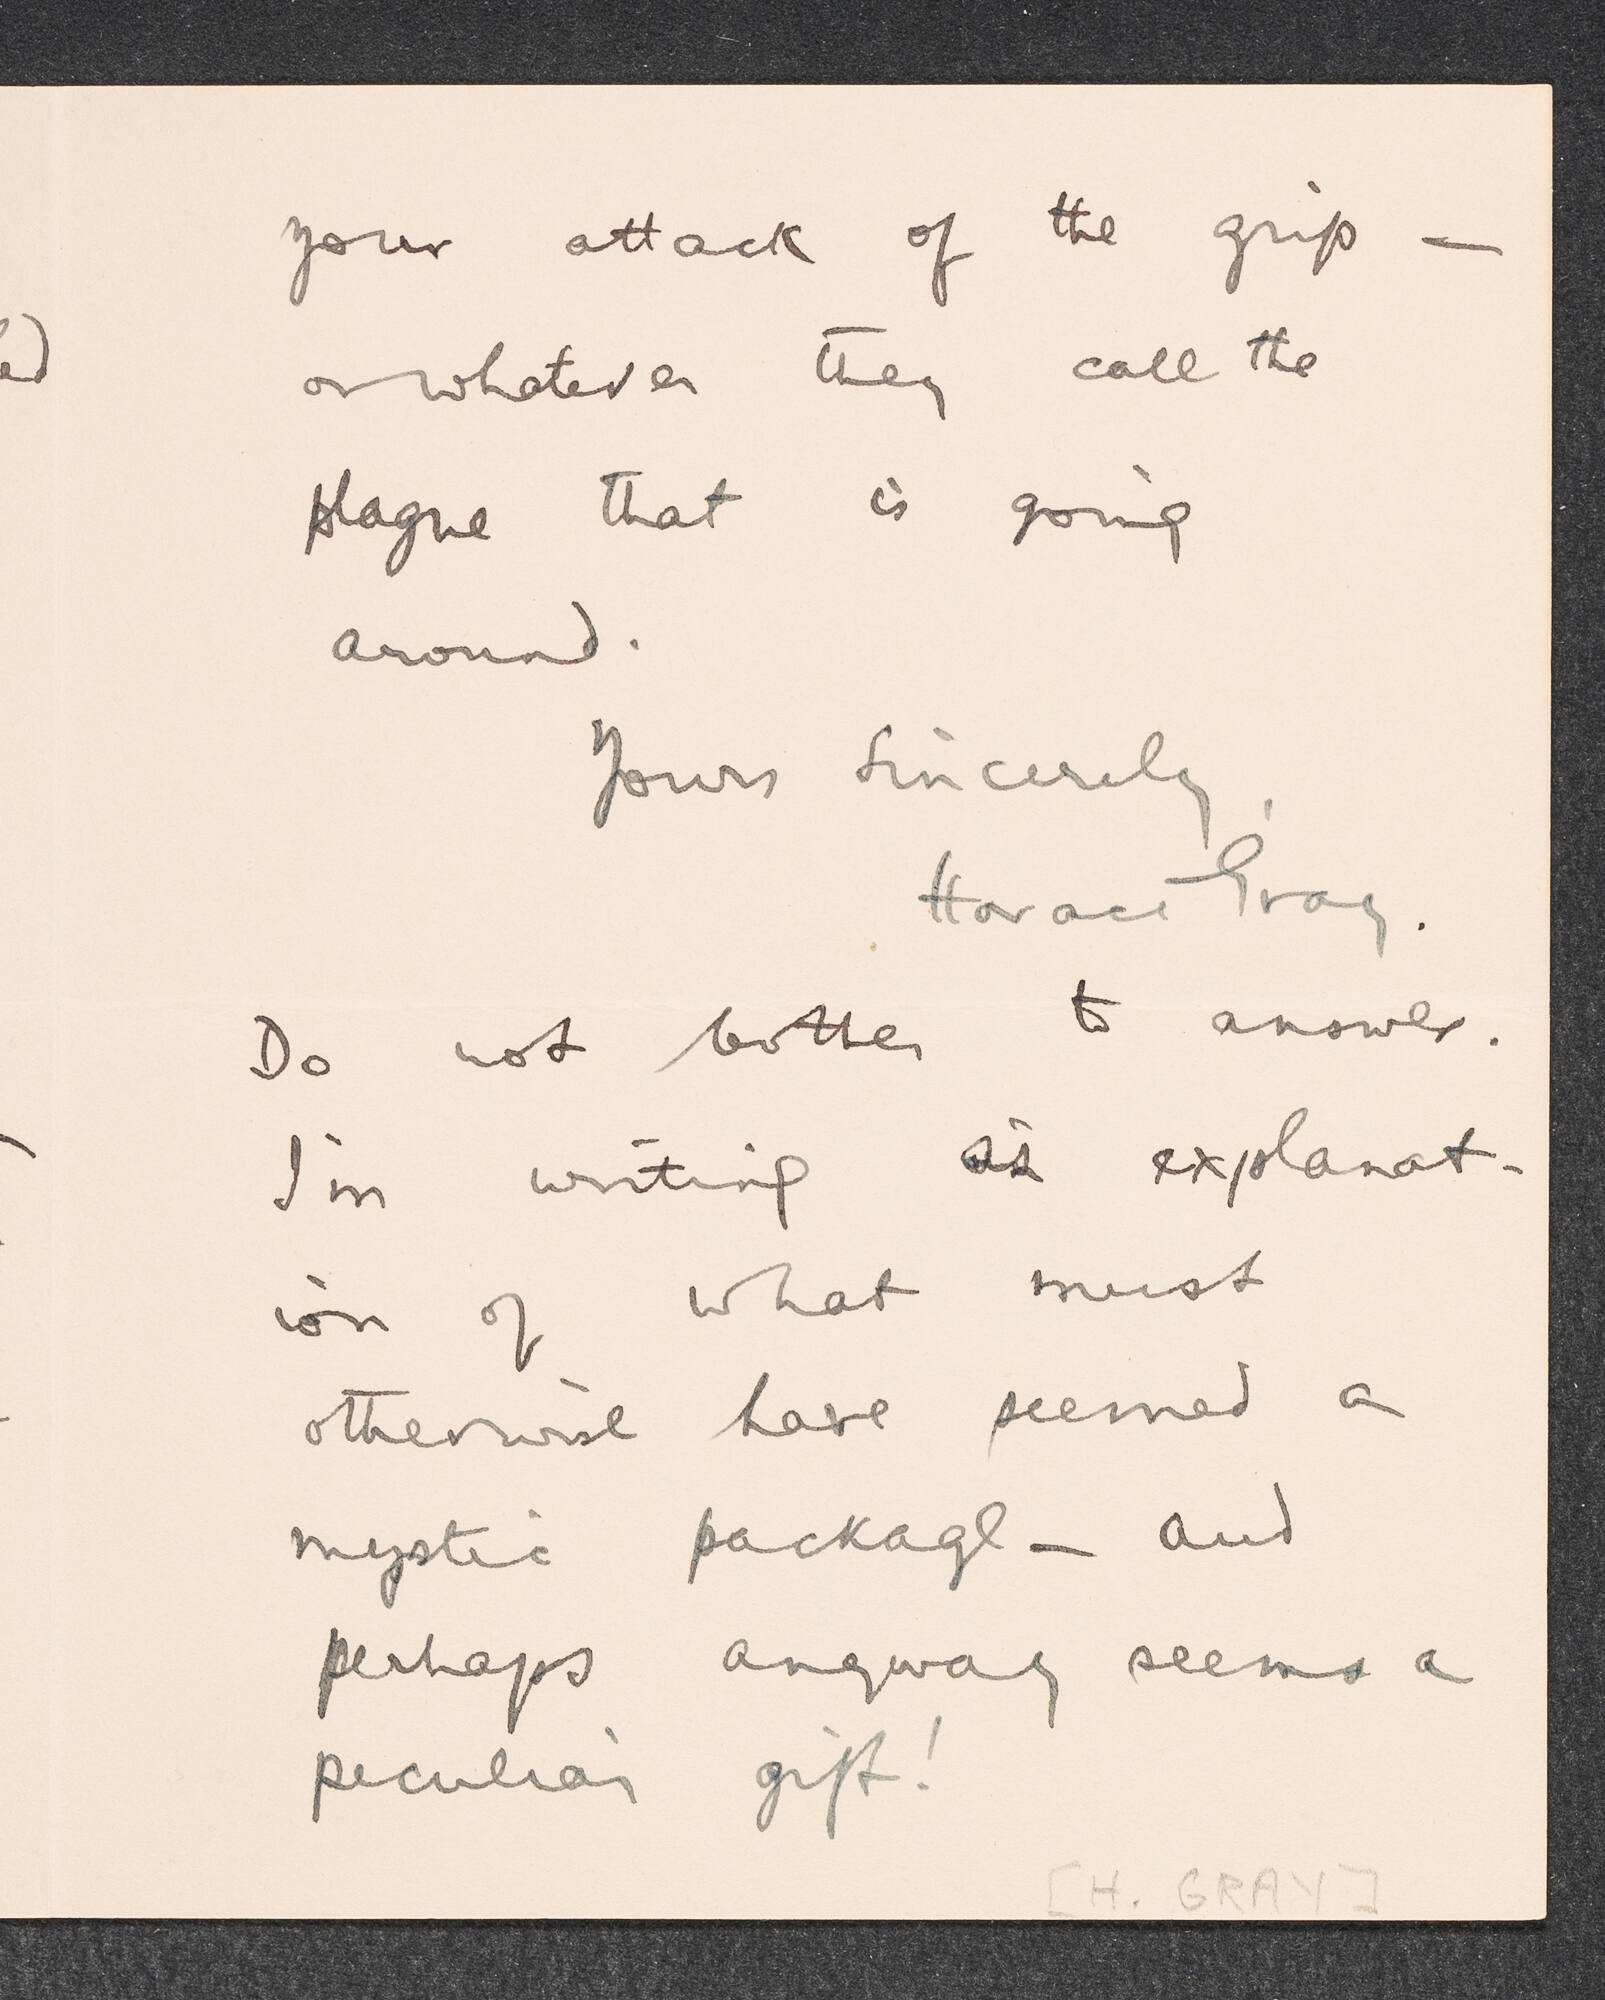 your attack of the grip —
or whatever they call the
plague that is going
around.
Yours sincerely,
Horace Gray.
Do not bother to answer.
I'm writing in explanat-
ion of what must
otherwise have seemed a
mystic package — and
perhaps anyway seems a
peculiar gift!
[H. GRAY]